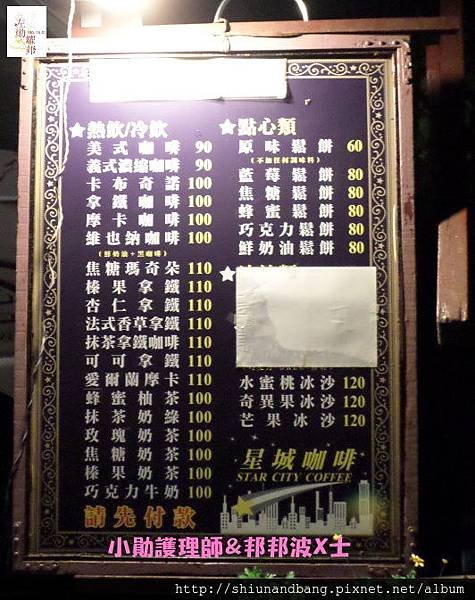 ★熱飲/冷飲
美式咖啡 90
義式濃縮咖啡 90
卡布奇諾 100
拿鐵咖啡 100
摩卡咖啡 100
維也納咖啡 100
(鮮奶油+黑咖啡)
焦糖瑪奇朵 110
榛果拿鐵 110
杏仁拿鐵 110
法式香草拿鐵 110
抹茶拿鐵咖啡 110
可可拿鐵 110
愛爾蘭摩卡 110
蜂蜜柚茶 100
抹茶奶綠 100
玫瑰奶茶 100
焦糖奶茶 100
榛果奶茶 100
巧克力牛奶 100
請先付款
★點心類
原味鬆餅 60
(不加任何調味料)
藍莓鬆餅 80
焦糖鬆餅 80
蜂蜜鬆餅 80
巧克力鬆餅 80
鮮奶油鬆餅 80
水蜜桃冰沙 120
奇異果冰沙 120
芒果冰沙 120
星城咖啡
STAR CITY COFFEE
小勛護理師&邦邦波X士
http://shiunandbang.pixnet.net/album